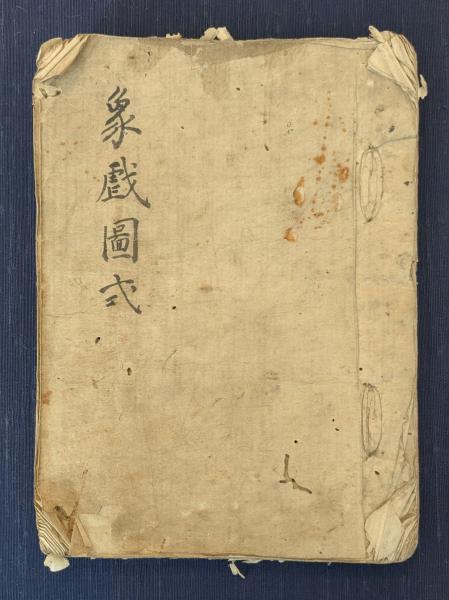 象戲圖式